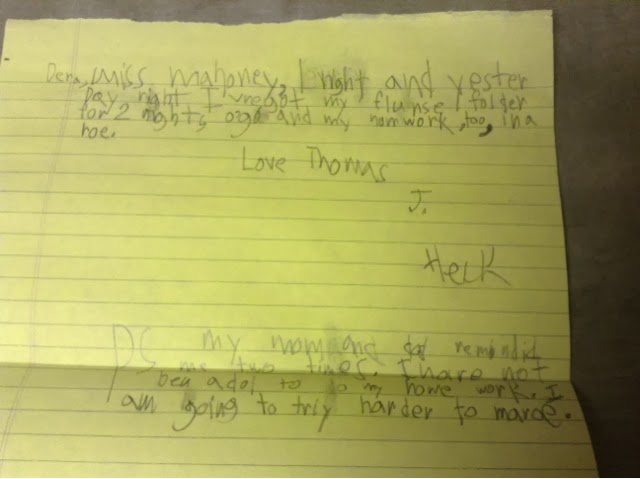 Dera, miss mahoney, 1 night and yester
Day right I vregot my flunse folder
for 2 nights, ogo and my nomwork, too, in a
hoe.
Love Thomas
J.
Heck
PS my mom and dad remindid
me two times. I have not
beu adol to do my howe work. I
am going to triy harder to maroe.